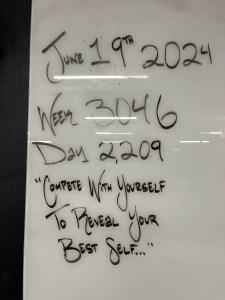 June 19th 2024
Week 3046
Day 2,209
"Compete With Yourself
To Reveal Your
Best Self..."